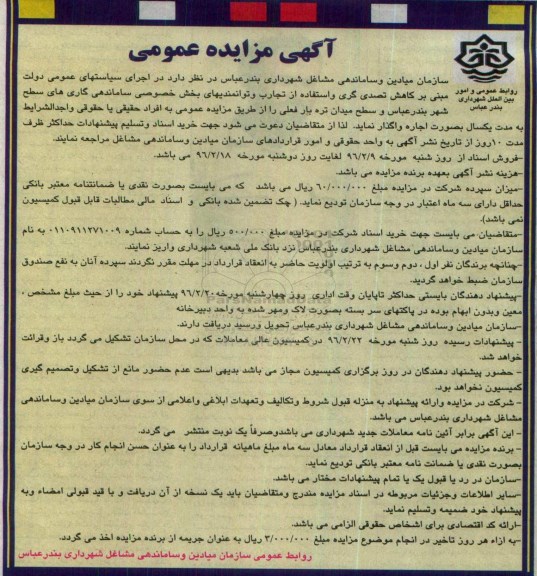 آگهی مزایده عمومی
روابط عمومی و امور
بین الملل شهرداری
بندر عباس
سازمان میادین وساماندهی مشاغل شهرداری بندرعباس در نظر دارد در اجرای سیاستهای عمومی دولت
مبنی بر کاهش تصدی گری واستفاده از تجارب وتوانمندیهای بخش خصوصی ساماندهی گاری های سطح
شهر بندرعباس و سطح میدان تره بار فعلی را از طریق مزایده عمومی به افراد حقیقی یا حقوقی واجدالشرایط
به مدت یکسال بصورت اجاره واگذار نماید. لذا از متقاضیان دعوت می شود جهت خرید اسناد وتسلیم پیشنهادات حداکثر ظرف
مدت ۱۰روز از تاریخ نشر آگهی به واحد حقوقی و امور قراردادهای سازمان میادین وساماندهی مشاغل مراجعه نمایند.
-فروش اسناد از روز شنبه مورخه ۹۶/۲/۹ لغایت روز دوشنبه مورخه ۹۶/۲/۱۸ می باشد.
-هزینه نشر آگهی بعهده برنده مزایده می باشد.
-میزان سپرده شرکت در مزایده مبلغ ۶۰/۰۰۰/۰۰۰ ریال می باشد که می بایست بصورت نقدی یا ضمانتنامه معتبر بانکی
حداقل دارای سه ماه اعتبار در وجه سازمان تودیع نماید. ( چک تضمین شده بانکی و اسناد مالی مطالبات قابل قبول کمیسیون
نمی باشد).
-متقاضیان می بایست جهت خرید اسناد شرکت در مزایده مبلغ ۵۰۰/۰۰۰ ریال را به حساب شماره ۰۱۱۰۹۱۱۲۷۱۰۰۹ به نام
سازمان میادین وساماندهی مشاغل شهرداری بندرعباس نزد بانک ملی شعبه شهرداری واریز نمایند.
-چنانچه برندگان نفر اول ، دوم وسوم به ترتیب اولویت حاضر به انعقاد قرارداد در مهلت مقرر نگردند سپرده آنان به نفع صندوق
سازمان ضبط خواهد گردید.
-پیشنهاد دهندگان بایستی حداکثر تاپایان وقت اداری روز چهارشنبه مورخه ۹۶/۲/۲۰ پیشنهاد خود را از حیث مبلغ مشخص ،
معین وبدون ابهام بوده در پاکتهای سر بسته بصورت لاک ومهر شده به واحد دبیرخانه
-سازمان میادین وساماندهی مشاغل شهرداری بندرعباس تحویل ورسید دریافت دارند.
- پیشنهادات رسیده روز شنبه مورخه ۹۶/۲/۲۲ در کمیسیون عالی معاملات که در محل سازمان تشکیل می گردد باز وقرائت
خواهد شد.
- حضور پیشنهاد دهندگان در روز برگزاری کمیسیون مجاز می باشد بدیهی است عدم حضور مانع از تشکیل وتصمیم گیری
کمیسیون نخواهد بود.
- شرکت در مزایده وارائه پیشنهاد به منزله قبول شروط وتکالیف وتعهدات ابلاغی واعلامی از سوی سازمان میادین وساماندهی
مشاغل شهرداری بندرعباس می باشد.
- این آگهی برابر آئین نامه معاملات جدید شهرداری می باشدوصرفاً یک نوبت منتشر می گردد.
- برنده مزایده می بایست قبل از انعقاد قرارداد معادل سه ماه مبلغ ماهیانه قرارداد را به عنوان حسن انجام کار در وجه سازمان
بصورت نقدی یا ضمانت نامه معتبر بانکی تودیع نماید.
-سازمان در رد یا قبول یک یا تمام پیشنهادات مختار می باشد.
-سایر اطلاعات وجزئیات مربوطه در اسناد مزایده مندرج ومتقاضیان باید یک نسخه از آن دریافت و با قید قبولی امضاء وبه
پیشنهاد خود ضمیمه وتسلیم نماید.
-ارائه کد اقتصادی برای اشخاص حقوقی الزامی می باشد.
-به ازاء هر روز تاخیر در انجام موضوع مزایده مبلغ ۳/۰۰۰/۰۰۰ ریال به عنوان جریمه از برنده مزایده اخذ می گردد.
روابط عمومی سازمان میادین وساماندهی مشاغل شهرداری بندرعباس